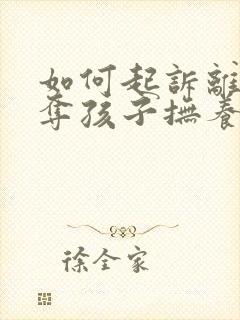 如何起訴離
奪孩子撫養
徐全家